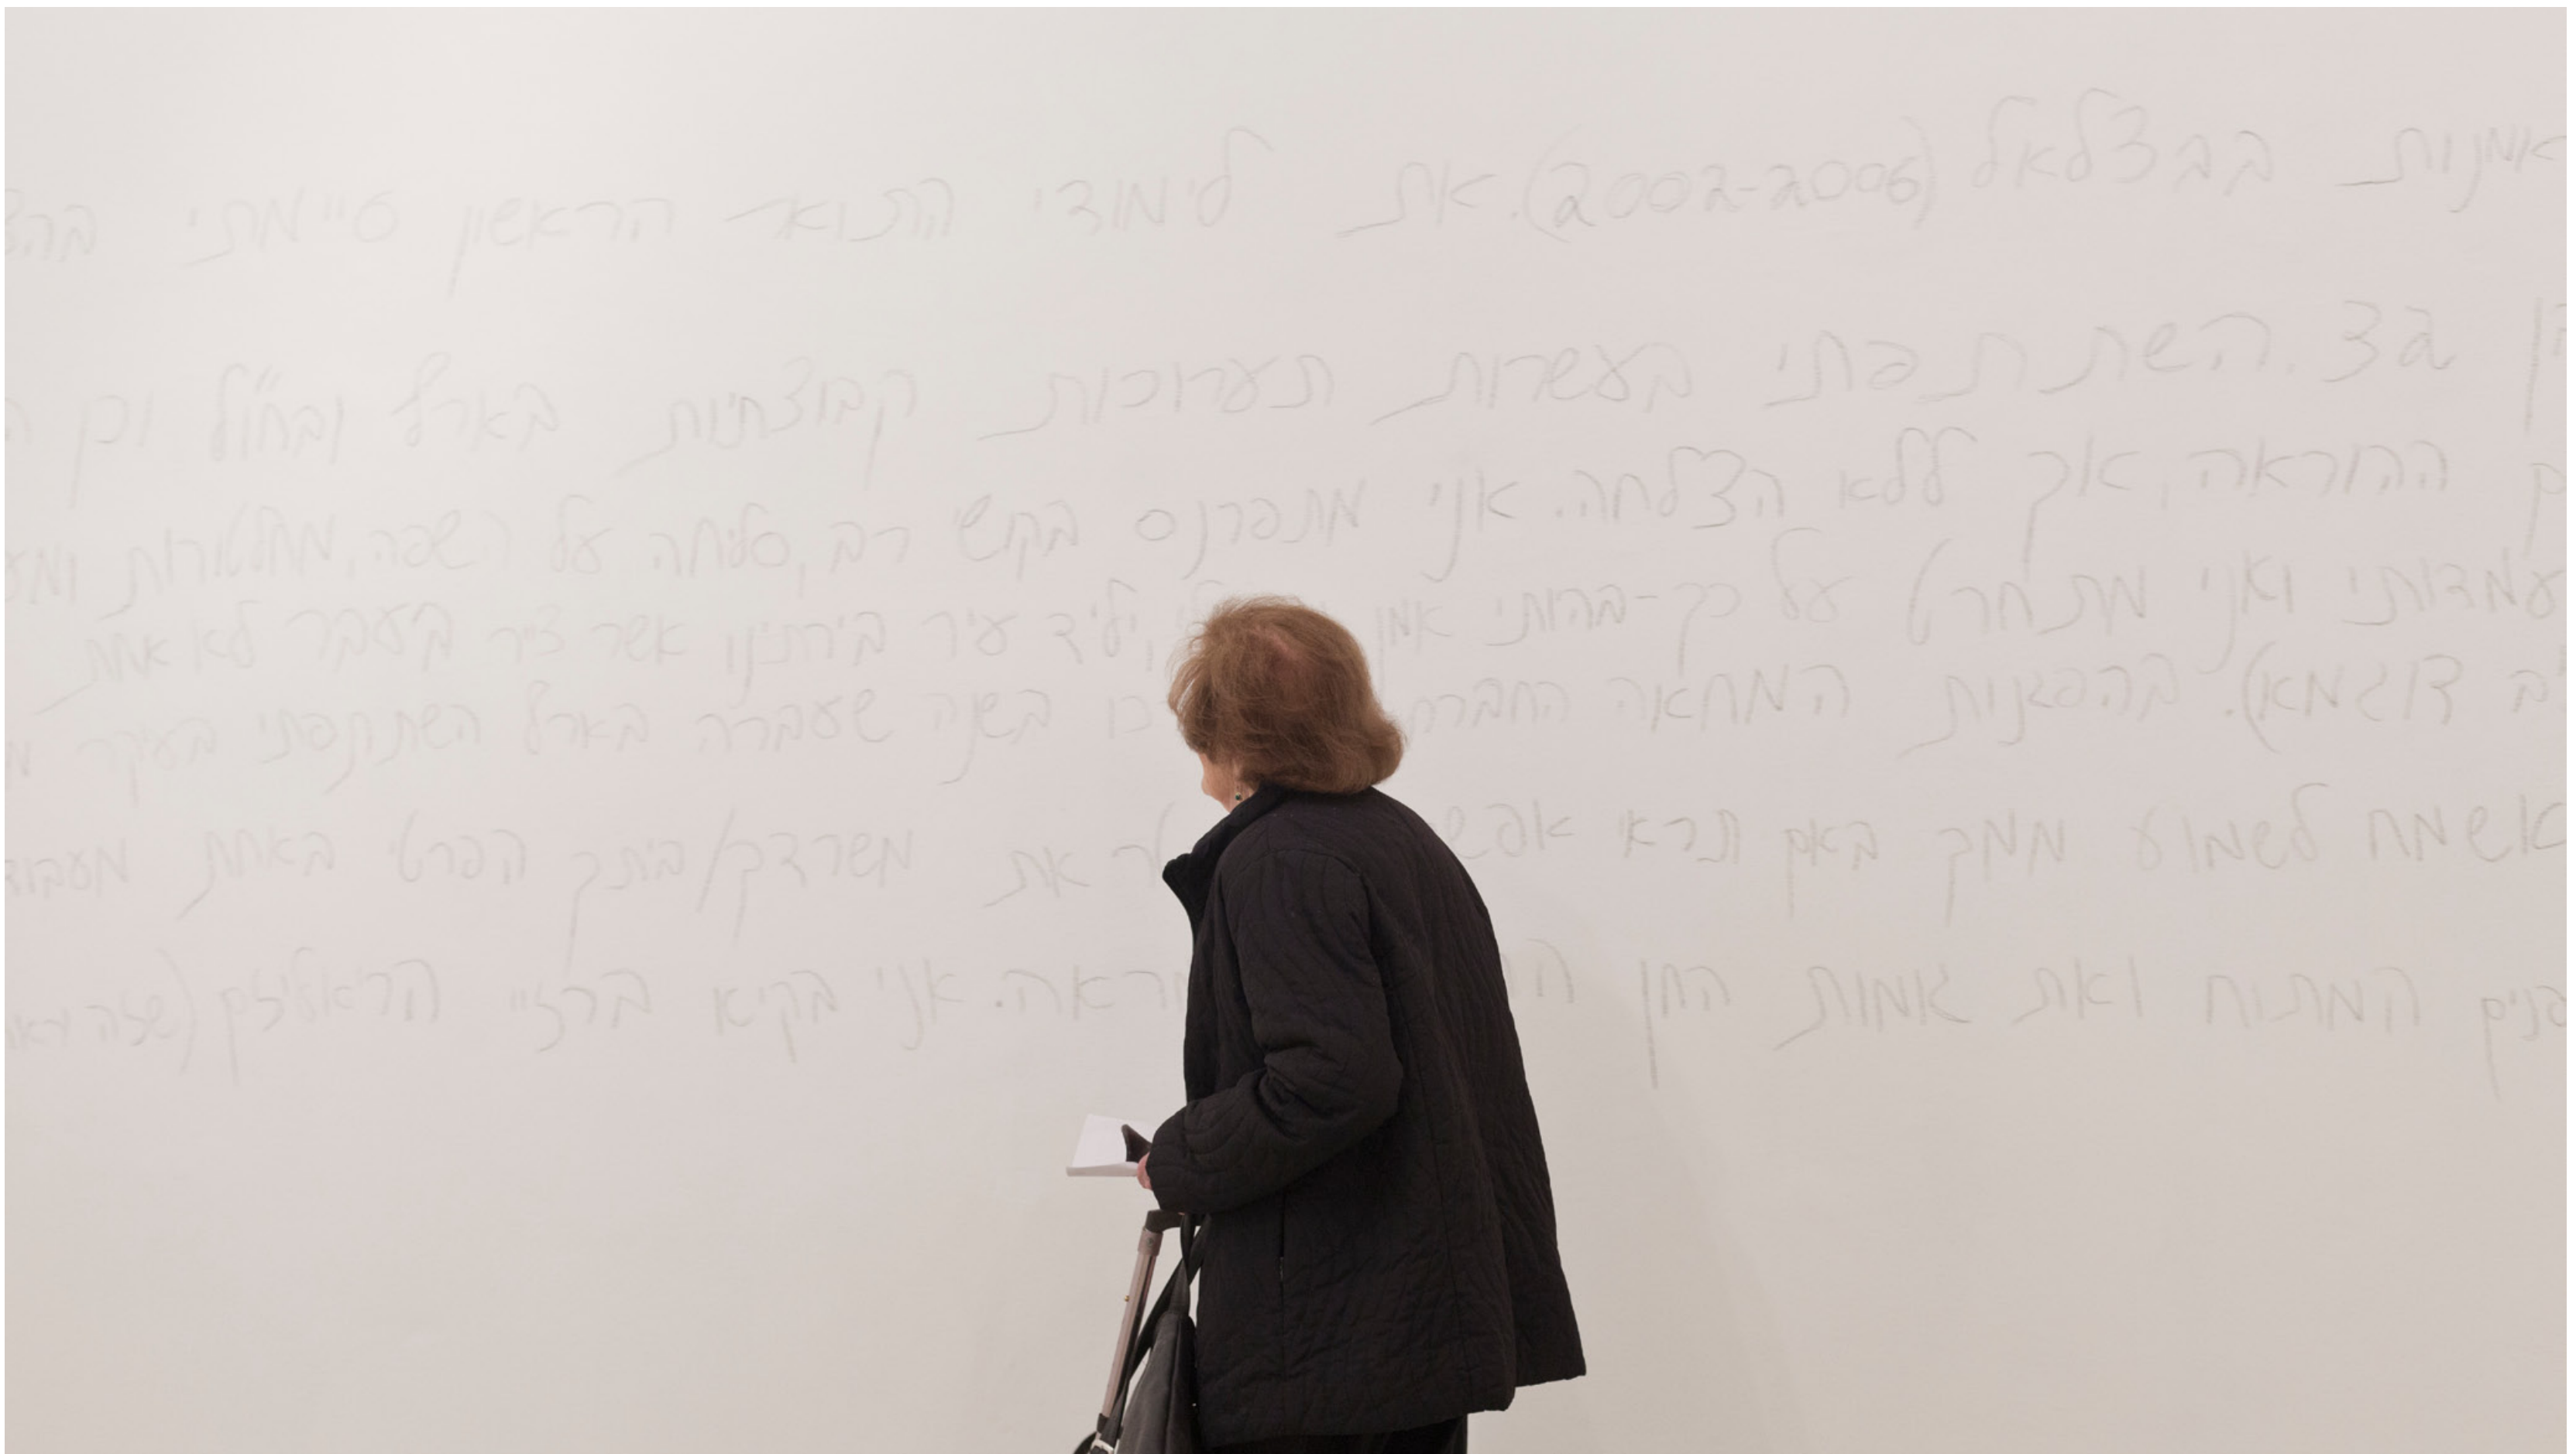 אמנות בבצלאל (2002-2006). את לימודי התואר הראשון סיימתי
בצ. השתתפתי בעשרות תערוכות קבוצתיות בארץ ובחו"ל וכן
ההוראה, אך ללא הצלחה. אני מתפרנס בקשי רב, סליחה על השפה, מחלטורות
עמדותי ואני מתחרט על כך - בהיותי אמן יליד עיר בירתינו אשר צייר בעבר לא אחת
דוגמא). בהפגנות המחאה כו בשנה שעברה בארץ השתתפתי בעיקר
אשמח לשמוע ממך באם תרא את משרדך/ביתך הפרטי באחת
המתוח ואת גומות החן אני בקיא ברזיי הריאליזם (שזה